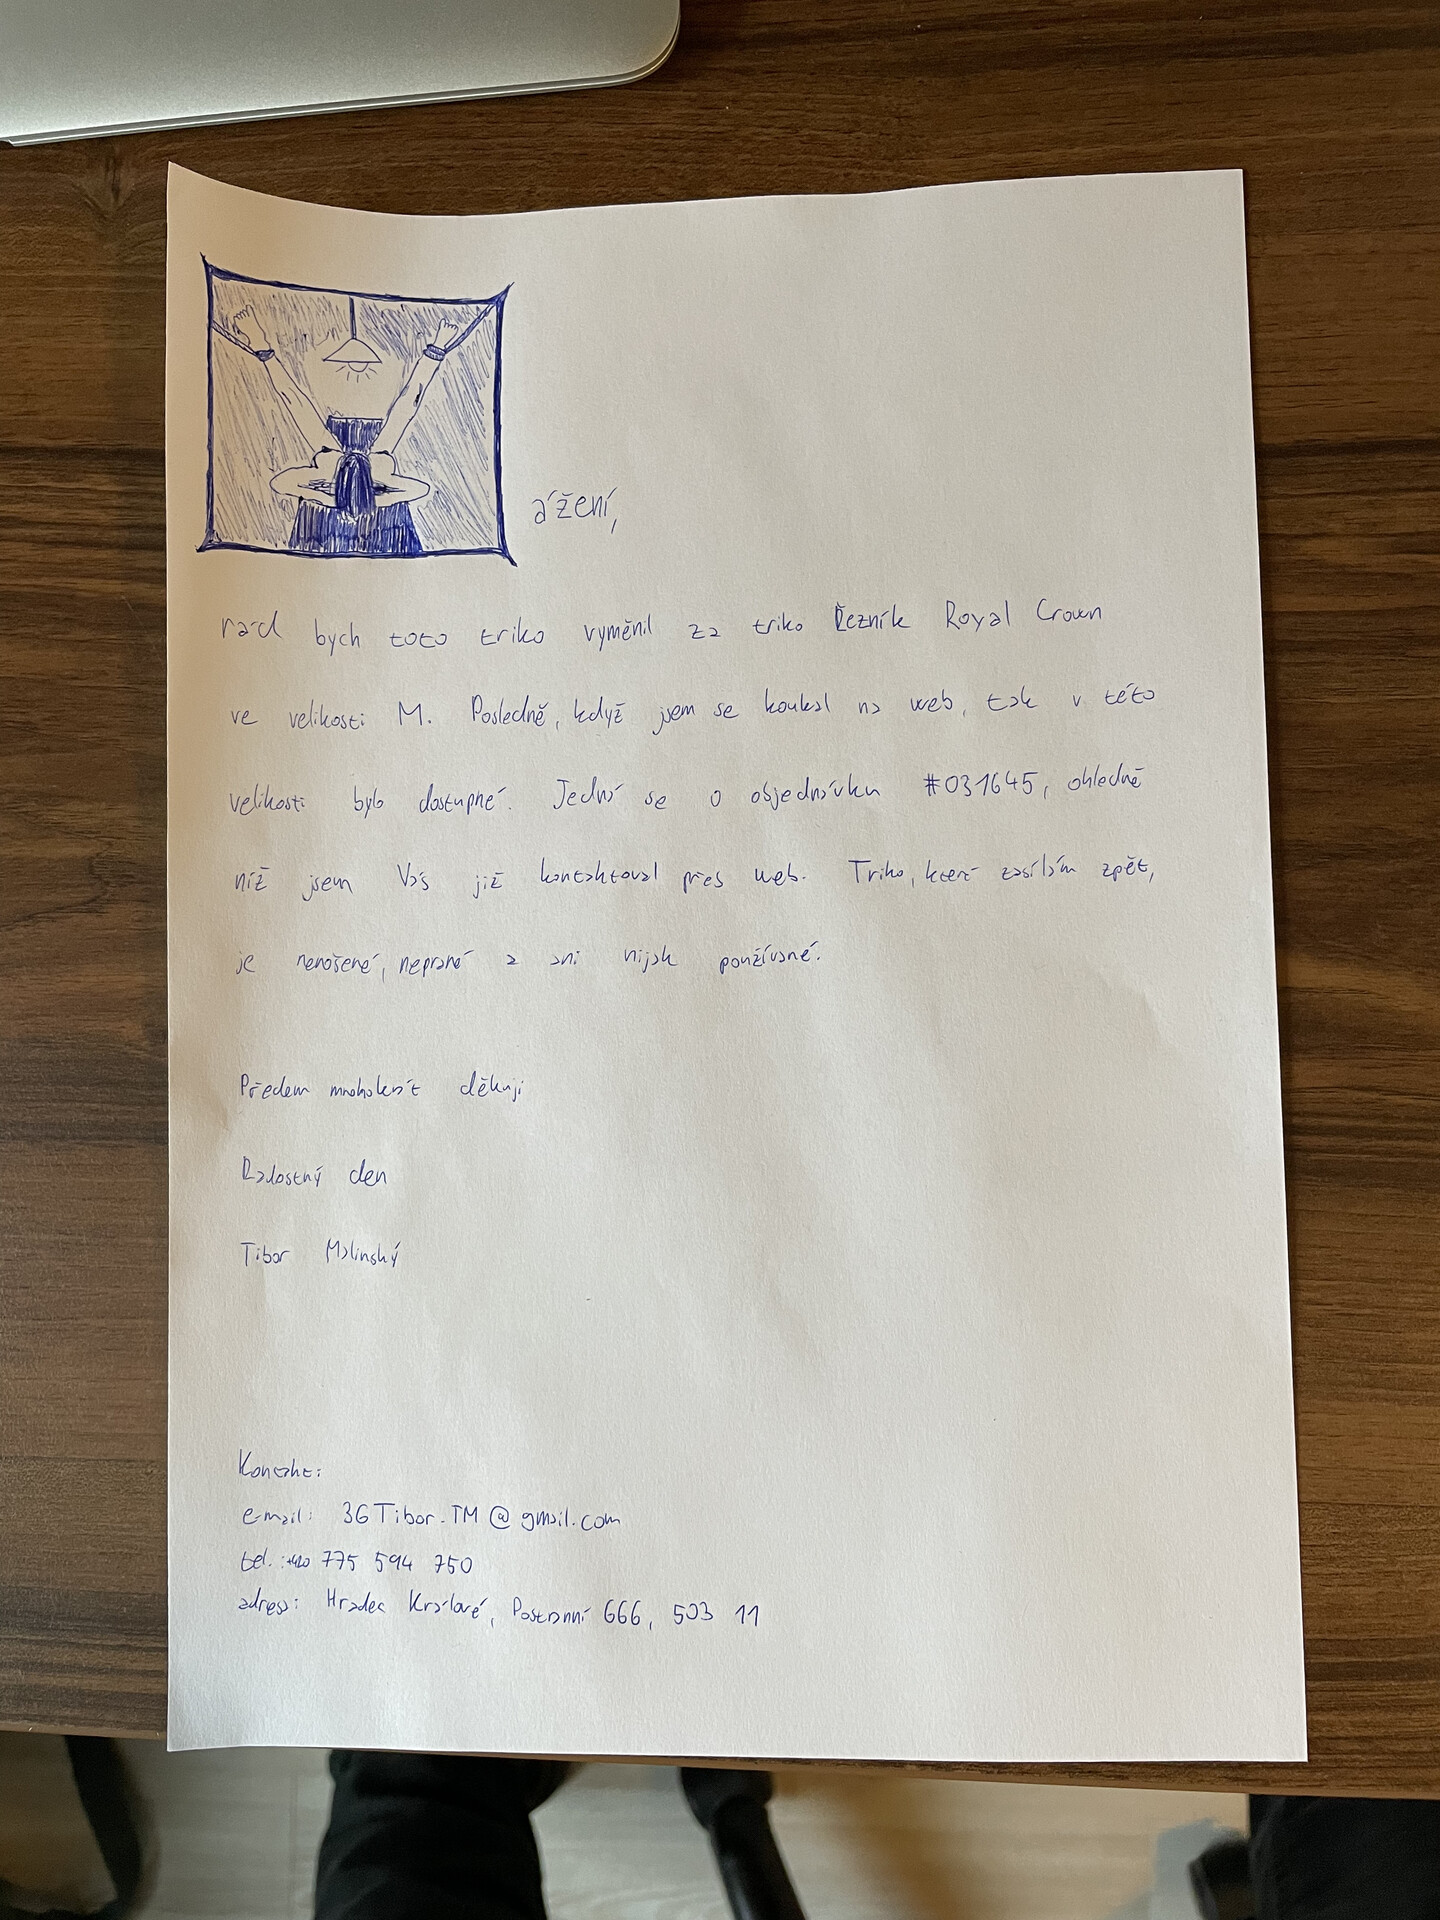 ážení,
rád bych toto triko vyměnil za triko Řezník Royal Crown
ve velikosti M. Posledně, když jsem se koukal na web, tak v této
velikosti bylo dostupné. Jedná se o objednávku #031645, ohledně
níž jsem Vás již kontaktoval přes web. Triko, které zasílám zpět,
je nenošené, neprané a ani nijak používané.
Předem mnohokrát děkuji
Radostný den
Tibor Malinský
Kontakt:
e-mail: 36Tibor.TM@gmail.com
tel.: +420 775 594 750
adresa: Hradec Králové, Postranní 666, 503 11